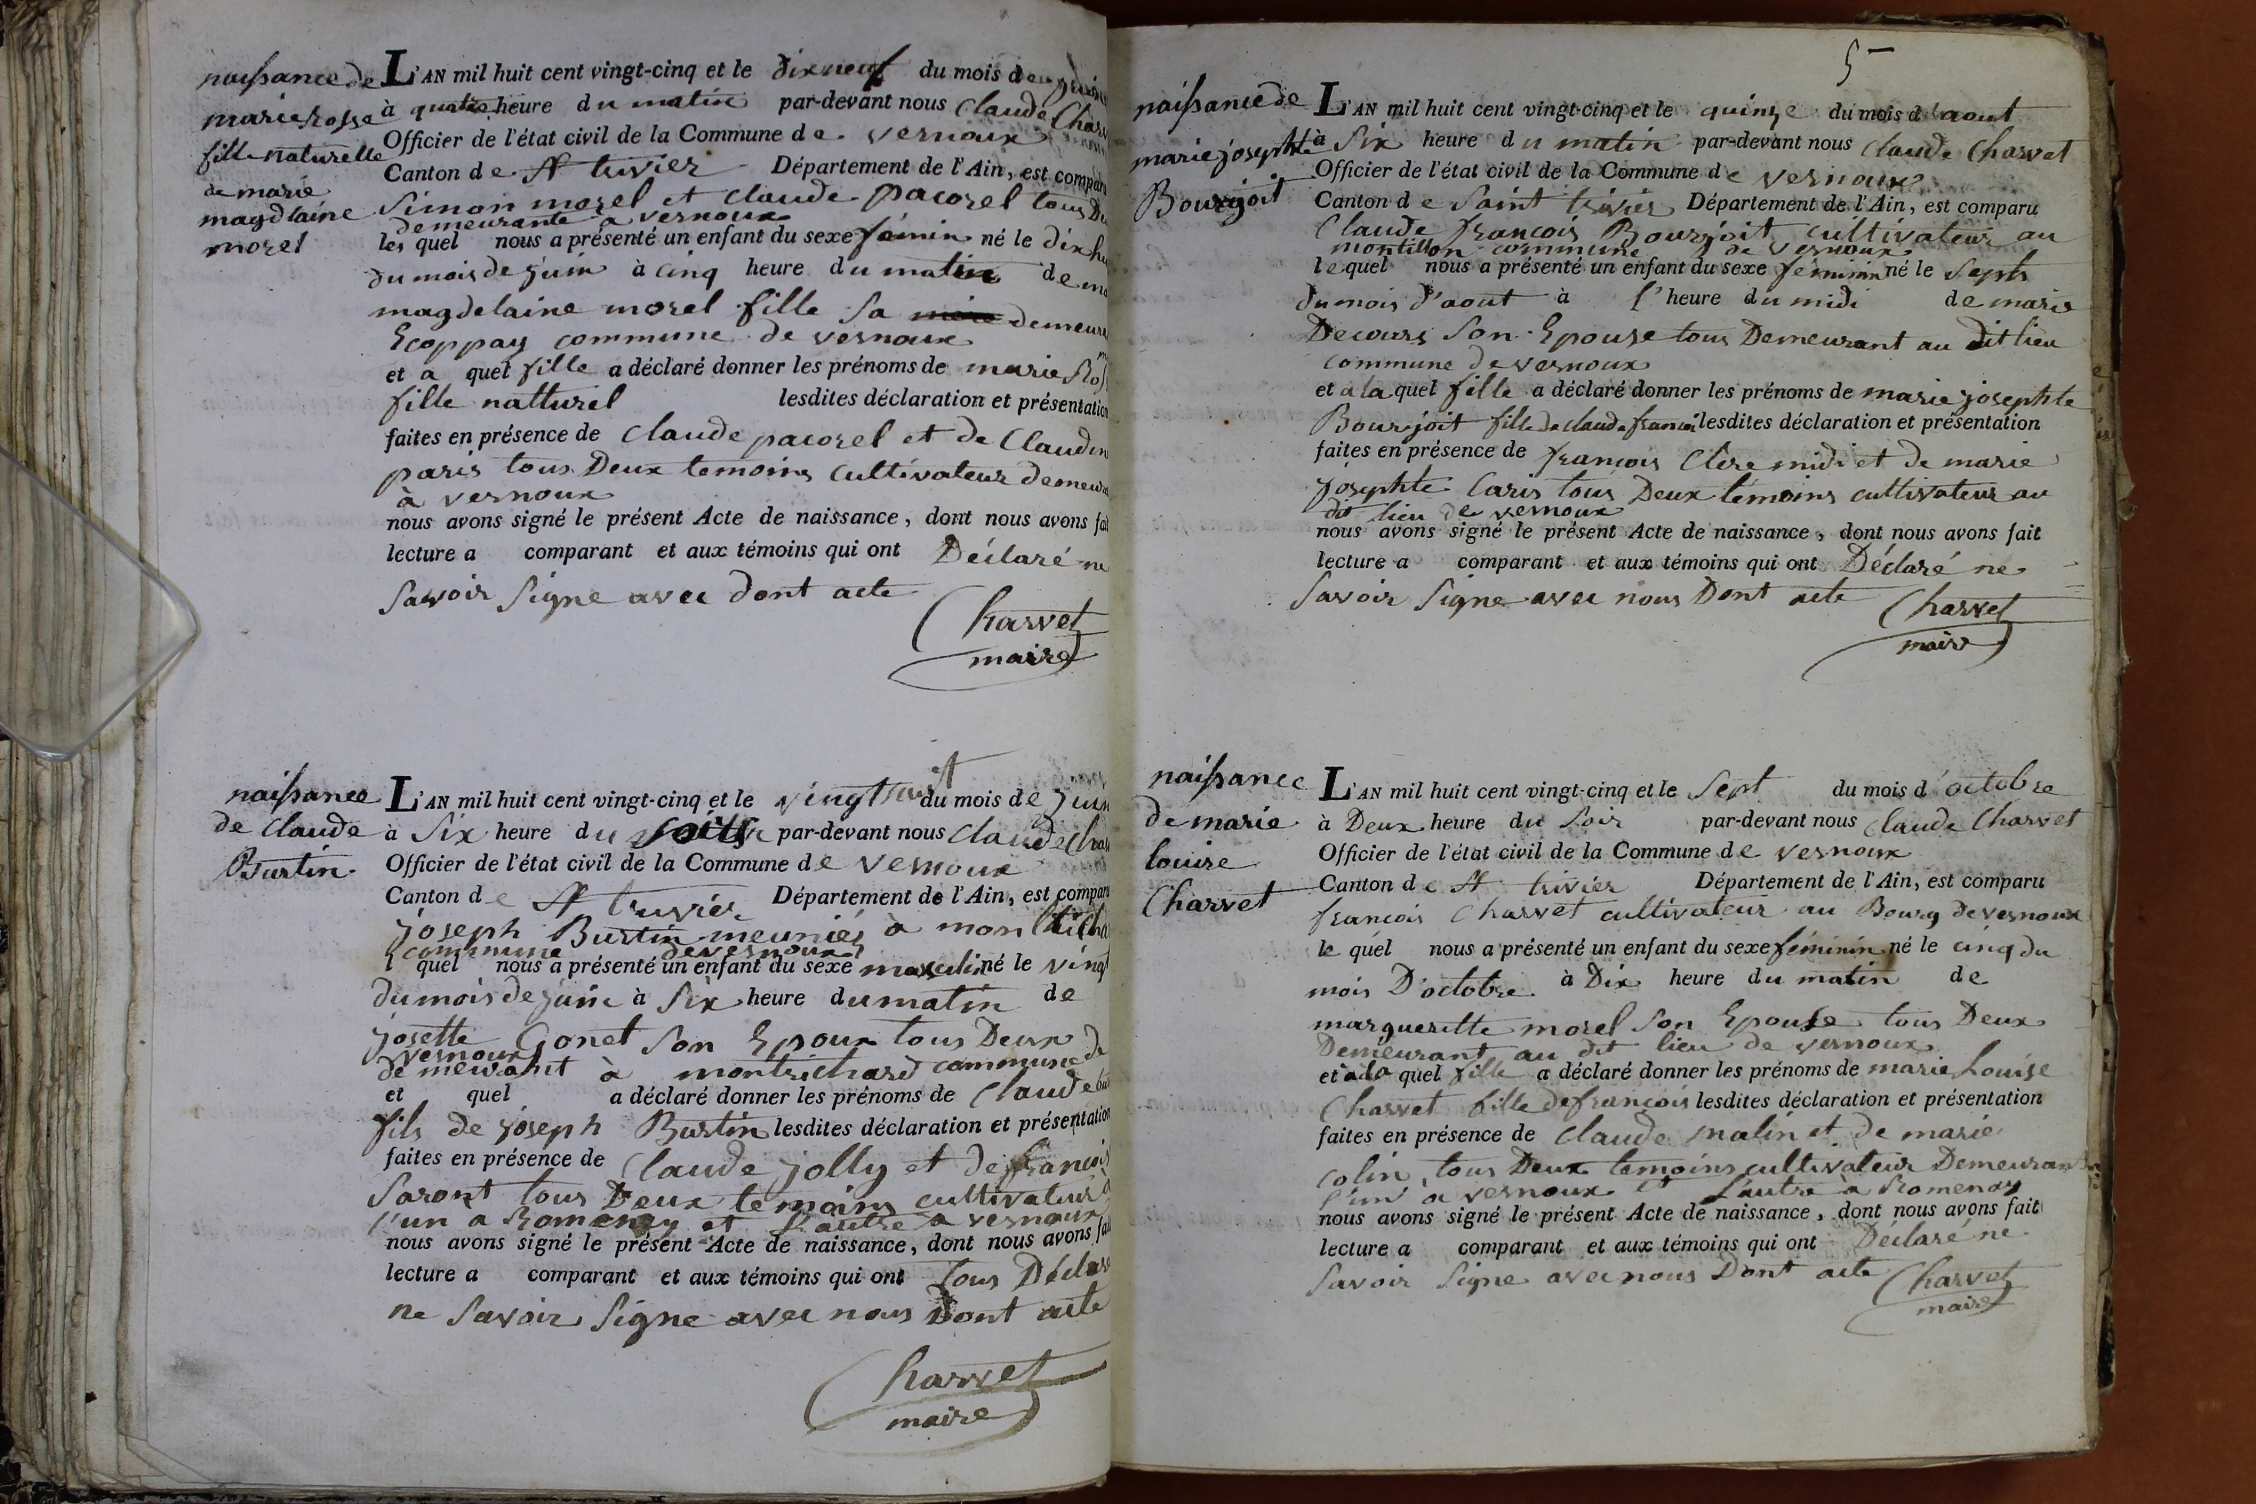 naissance de
marie Rosse
fille naturelle
de marie
magdlaine
morel
L'AN mil huit cent vingt-cinq et le dix neuf du mois de juin
à quatre heure du matin par-devant nous Claude Char
Officier de l'état civil de la Commune de vernoux
Canton de St trivier Département de l'Ain, est compar
Simon morel et claude pacorel tous
demeurante a vernoux
les quel nous a présenté un enfant du sexe féminin né le dix hu
du mois de juin à cinq heure du matin de ma
magdelaine morel fille sa demeur
Ecoppay commune de vernoux
et a quel fille a déclaré donner les prénoms de marie Ros
fille natturel lesdites déclaration et présentation
faites en présence de claude pacorel et de Claudin
paris tous Deux temoins cultivateur demeur
à vernoux
nous avons signé le présent Acte de naissance, dont nous avons fai
lecture a comparant et aux témoins qui ont Déclaré ne
savoir signe avec dont acte
Charvet
maire
naissance
de Claude
Burtin
L'AN mil huit cent vingt-cinq et le vingt du mois de juin
à Six heure du par-devant nous claude Char
Officier de l'état civil de la Commune de vernoux
Canton de St truvier Département de l'Ain, est compar
joseph Burtin meunier à
commune de vernoux
l quel nous a présenté un enfant du sexe masculin né le vingt
du mois de juin à Six heure du matin de
josette Gonet son Epoux tous Deux
de
vernoux
demeurant à montrichard commune
et quel a déclaré donner les prénoms de Claude
fils de joseph Burtin lesdites déclaration et présentation
faites en présence de Claude jolly et de francois
Saront tous Deux temoins cultivateur
l'un a Romenay et l'autre a vernoux
nous avons signé le présent Acte de naissance, dont nous avons fai
lecture a comparant et aux témoins qui ont tous Déclare
ne savoir signe avec nous Dont acte
Charvet
maire
5
naissance de
marie josephte
Bourgoit
L'AN mil huit cent vingt-cinq et le quinze du mois d'aout
à Six heure du matin par-devant nous claude Charvet
Officier de l'état civil de la Commune de vernoux
Canton de Saint trivier Département de l'Ain, est comparu
Claude francois Bourjoit cultivateur au
montillon commune de vernoux
le quel nous a présenté un enfant du sexe féminin né le septs
du mois d'aout à l'heure du midi de marie
Decours son Epouse tous Demeurant au dit lieu
commune de vernoux
et a la quel fille a déclaré donner les prénoms de marie josephte
Bourjoit fille de claude francoi lesdites déclaration et présentation
faites en présence de francois Clere midi et de marie
josephte Caris tous Deux témoins cultivateur au
dit lieu de vernoux
nous avons signé le présent Acte de naissance, dont nous avons fait
lecture a comparant et aux témoins qui ont Déclaré ne
savoir signe avec nous Dont acte
Charvet
maire
naissance
de marie
louise
Charvet
L'AN mil huit cent vingt-cinq et le Sept du mois d'octobre
à Deux heure du soir par-devant nous claude Charvet
Officier de l'état civil de la Commune de vernoux
Canton de St trivier Département de l'Ain, est comparu
francois Charvet cultivateur au Bourg de vernoux
le quel nous a présenté un enfant du sexe féminin né le cinq du
mois D'octobre à Dix heure du matin de
margueritte morel son Epouse tous Deux
Demeurant au dit lieu de vernoux
et a la quel fille a déclaré donner les prénoms de marie Louise
Charvet fille de françois lesdites déclaration et présentation
faites en présence de claude malin et de marie
colin, tous Deux temoins cultivateur Demeurant
l'un a vernoux et l'autre à Romenay
nous avons signé le présent Acte de naissance, dont nous avons fait
lecture a comparant et aux témoins qui ont Déclaré ne
savoir signe avec nous Dont acte
Charvet
maire